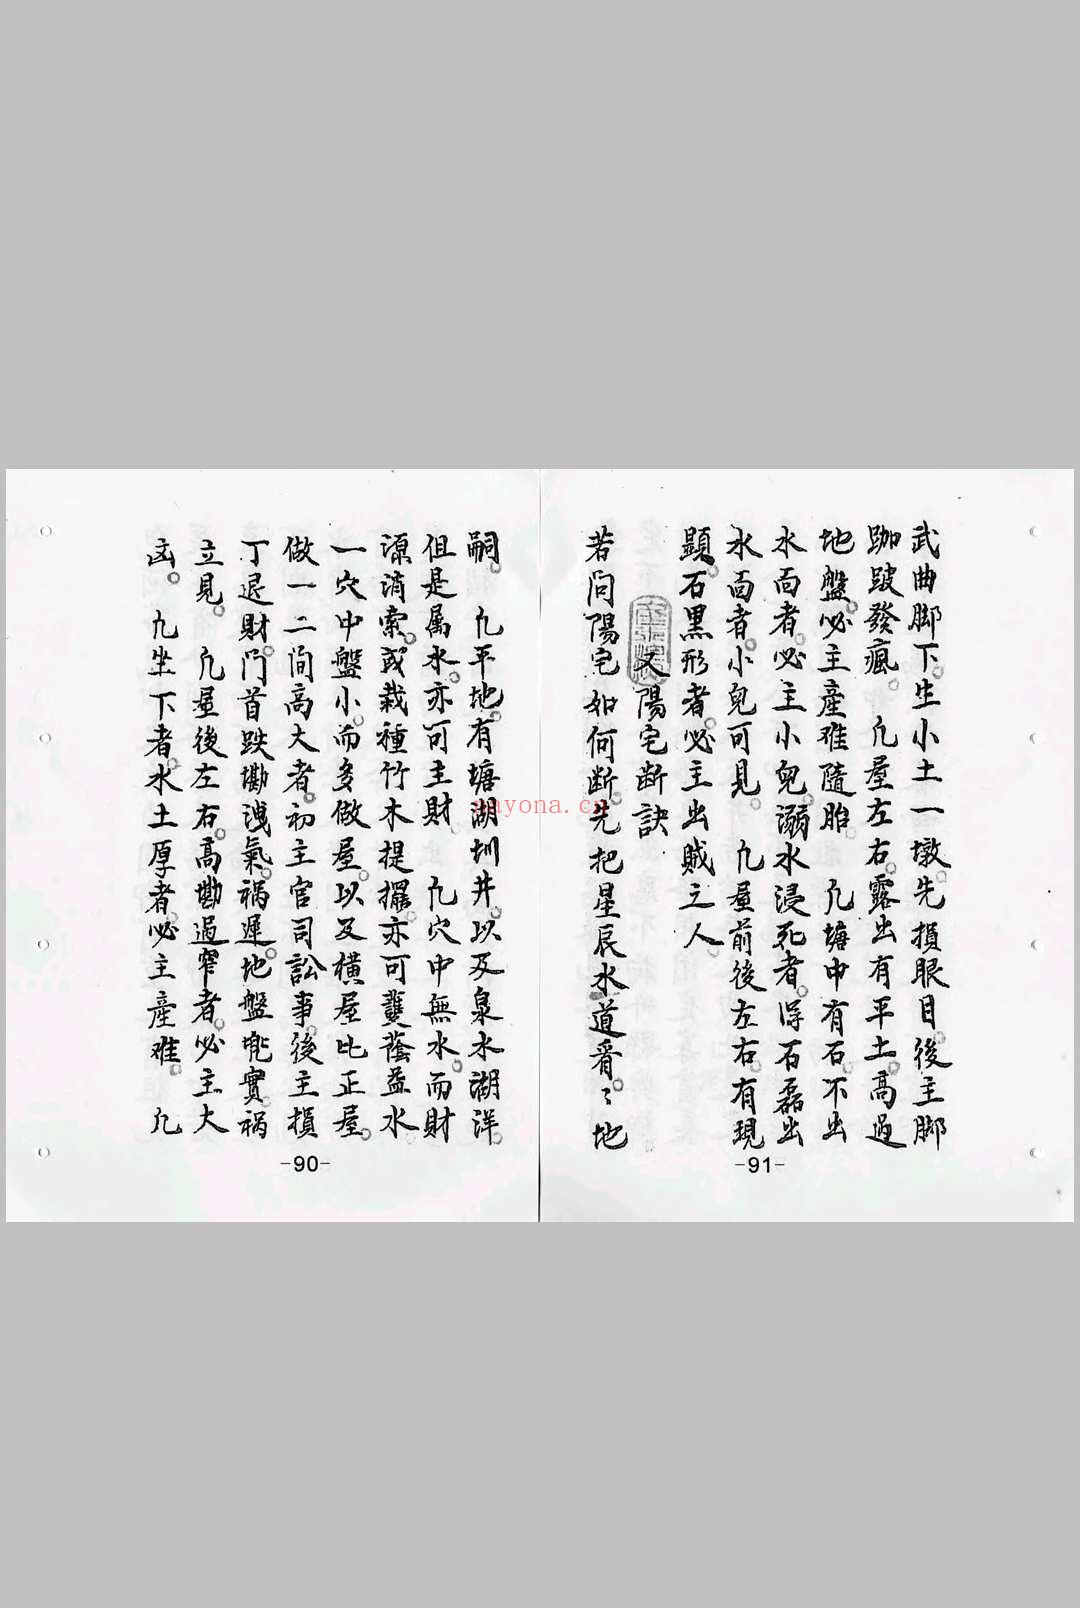 嗣。凡平地。有塘湖圳井。以及泉水湖洋。
但是属水。亦可主財。凡穴中無水。而財
源消索。或栽種竹木提擺。亦可蓑蔭益水
一穴中盤小。而多做屋。以及橫屋比正屋。
做一二间高大者。初主官司訟事。後主損
丁退財。门首跌墈洩氣。祸遲。地盤唣實。祸
立見。凡屋後左右。高墈過窄者。必主大
凶。凡坐下者。水土厚者。必主產难。凡
-90-
武曲脚下。生小土一墩。先損眼目。後主脚
跏跛發瘋。凡屋左右。露出有平土。高過
地盤。必主產难隨胎。凡塘中有石。不出
水面者。必主小兒。溺水浸死者。浮石磊出
水面者。小兒可見。凡屋前後左右。有現
顯。石黑形者。必主出賊之人。
又陽宅断訣
若问陽宅如何断。先把星辰水道看。〻地
-91-
nayona.cn